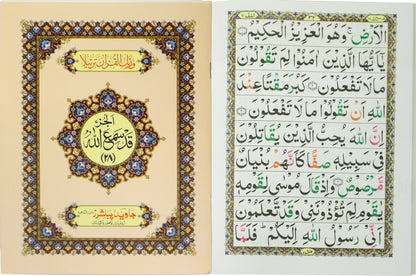 ورتل القرآن ترتيلا
الجزء
قد سمع الله
(٢٨)
جاوید پبلشرز
الْاَرْضِ ۚ وَهُوَ الْعَزِيْزُ الْحَكِيْمُ
يٰٓاَيُّهَا الَّذِيْنَ اٰمَنُوْا لِمَ تَقُوْلُوْنَ
مَا لَا تَفْعَلُوْنَ كَبُرَ مَقْتًا عِنْدَ
اللّٰهِ اَنْ تَقُوْلُوْا مَا لَا تَفْعَلُوْنَ
اِنَّ اللّٰهَ يُحِبُّ الَّذِيْنَ يُقَاتِلُوْنَ
فِيْ سَبِيْلِهٖ صَفًّا كَاَنَّهُمْ بُنْيَانٌ
مَّرْصُوْصٌ وَاِذْ قَالَ مُوْسٰى لِقَوْمِهٖ
يٰقَوْمِ لِمَ تُؤْذُوْنَنِيْ وَقَدْ تَّعْلَمُوْنَ
اَنِّيْ رَسُوْلُ اللّٰهِ اِلَيْكُمْ فَلَمَّا